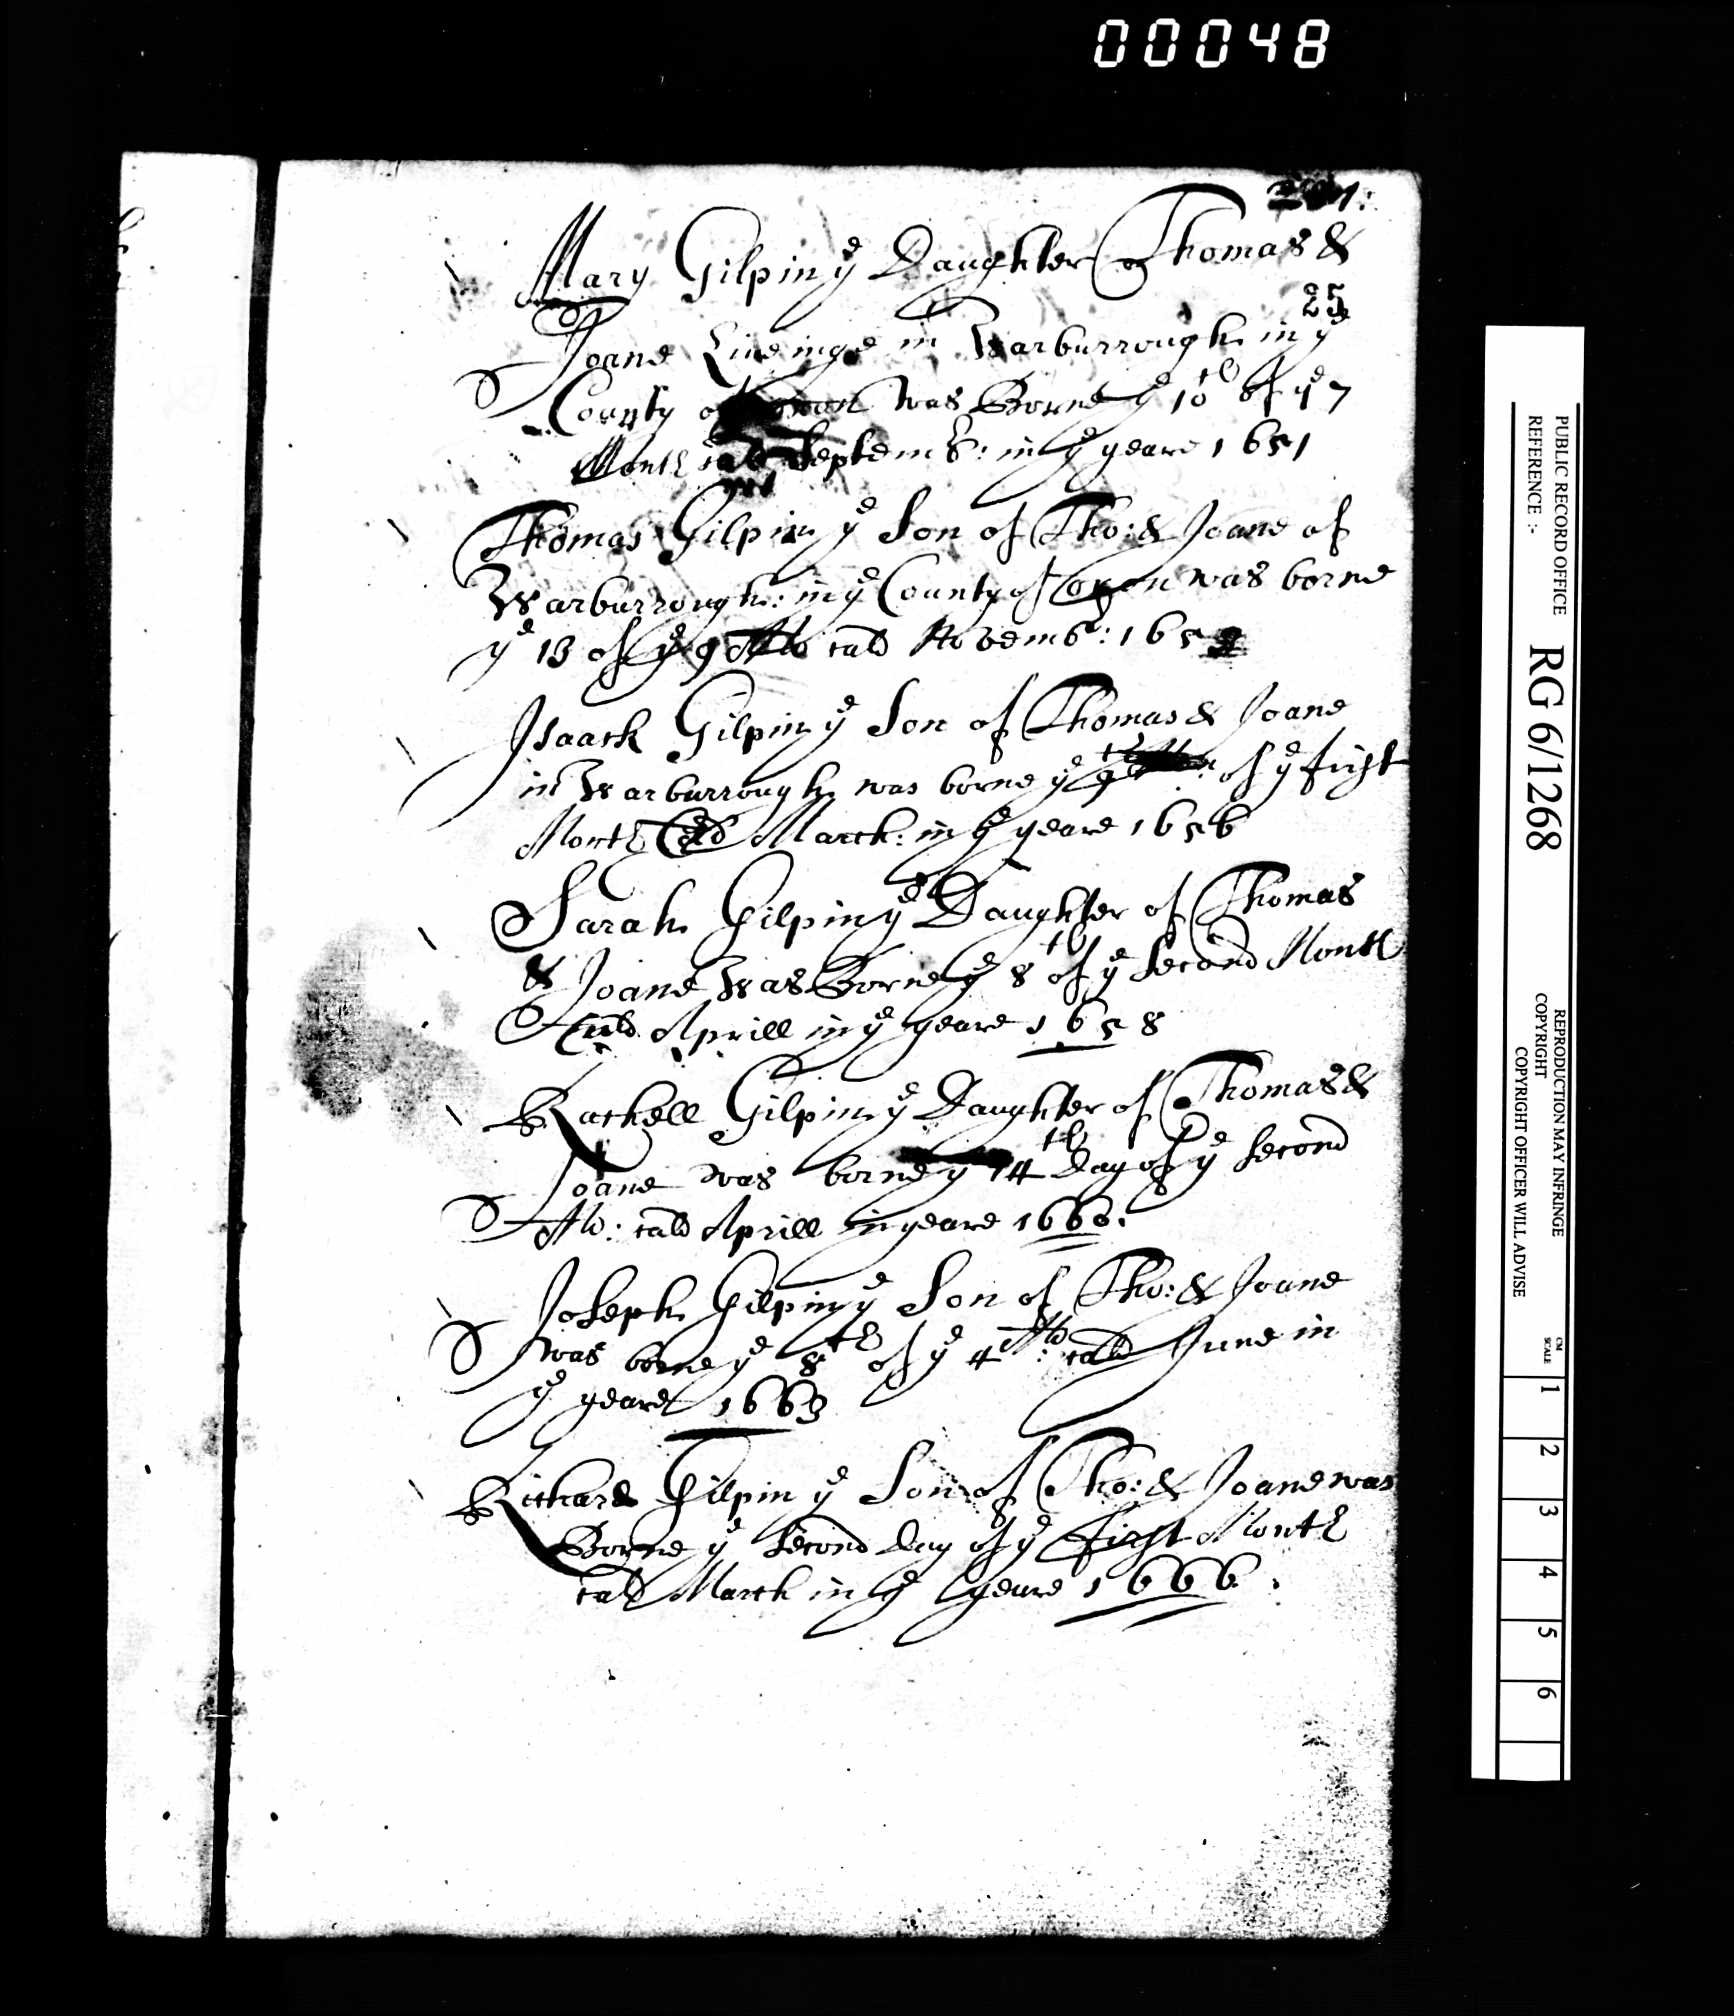 00048
Mary Gilpin yᵉ Daughter of Thomas &
25
Joane Liueinge in Warburrough in yᵉ
County of Oxon was Borne yᵉ 10th of yᵉ 7
Month cald Septemb: in yᵉ yeare 1651
Thomas Gilpin yᵉ Son of Tho: & Joane of
Warburrough: in yᵉ County of Oxon was borne
yᵉ 13 of yᵉ 9 Mo cald Novemb: 165
Isaack Gilpin yᵉ Son of Thomas & Joane
in Warburrough was borne yᵉ 9th of yᵉ first
Month Cald March: in yᵉ yeare 1656
Sarah Gilpin yᵉ Daughter of Thomas
& Joane Was Borne yᵉ 8th of yᵉ Second Month
Cald Aprill in yᵉ yeare 1658
Rachell Gilpin yᵉ Daughter of Thomas &
Joane was borne yᵉ 14th Day of yᵉ Second
Mo: cald Aprill in yeare 1660:
Joseph Gilpin yᵉ Son of Tho: & Joane
was borne yᵉ 8th of yᵉ 4 Mo: cald June in
yᵉ yeare 1663
Richard Gilpin yᵉ Son of Tho: & Joane was
Borne yᵉ Second Day of yᵉ first Month
cald March in yᵉ yeare 1666:
PUBLIC RECORD OFFICE
REFERENCE :-
RG 6/1268
REPRODUCTION MAY INFRINGE
COPYRIGHT
COPYRIGHT OFFICER WILL ADVISE
CM
SCALE
1
2
3
4
5
6